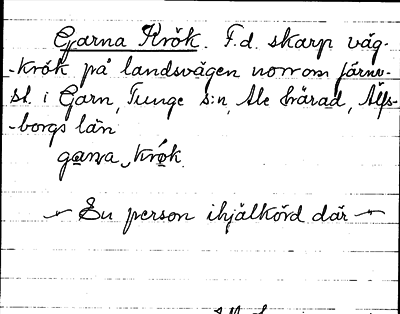 Garna Krök. F.d. skarp väg-
-krök på landsvägen norrom järnv.
st. i Garn, Tunge s:n, Ale härad, Älfs-
-borgs län
garna krók
— En person ihjälkörd där —